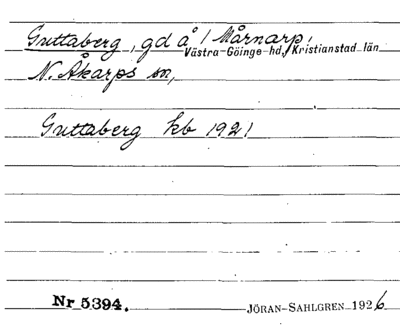 Guttaberg, gd å 1 Mårnarp,
Västra-Göinge-hd, Kristianstad län
N. Åkarps sn,
Guttaberg kb 1921
Nr 5394.
JÖRAN SAHLGREN 1926